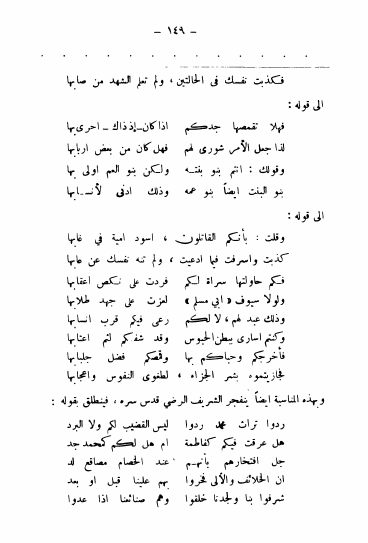 - ١٤٩ -
. . . . . . . . . . . . .
فكذبت نفسك في الحالتين، ولم تعلم الشهد من صابها
الى قوله :
فهلا تقمصها جدكم اذا كان-إذ ذاك-احرى بها
لذا جعل الأمر شورى لهم فهل كان من بعض اربابها
وقولك : انتم بنو بنته ولكن بنو العم اولى بها
بنو البنت ايضاً بنو عمه وذلك ادنى لأنسابها
الى قوله :
وقلت : بأنكم القاتلون، اسود امية في غابها
كذبت واسرفت فيما ادعيت، ولم تنه نفسك عن عابها
فكم حاولتها سراة لكم فردت على نكص اعقابها
ولولا سيوف « ابي مسلم » لعزت على جهد طلابها
وذلك عبد لهم، لا لكم رعى فيكم قرب انسابها
وكنتم اسارى ببطن الحبوس وقد شفكم لثم اعتابها
فأخرجكم وحباكم بها وقمصكم فضل جلبابها
فجازيتموه بشر الجزاء، لطغوى النفوس واعجابها
وبهذه المناسبة ايضاً ينفجر الشريف الرضي قدس سره، فينطلق بقوله :
ردوا تراث محمد ردوا ليس القضيب لكم ولا البرد
هل عرقت فيكم كفاطمة ام هل لكم كمحمد جد
جل افتخارهم بأنهم عند الخصام مصاقع لد
ان الخلائف والألى فخروا بهم علينا قبل او بعد
شرفوا بنا ولجدنا خلقوا وهم صنائعنا اذا عدوا